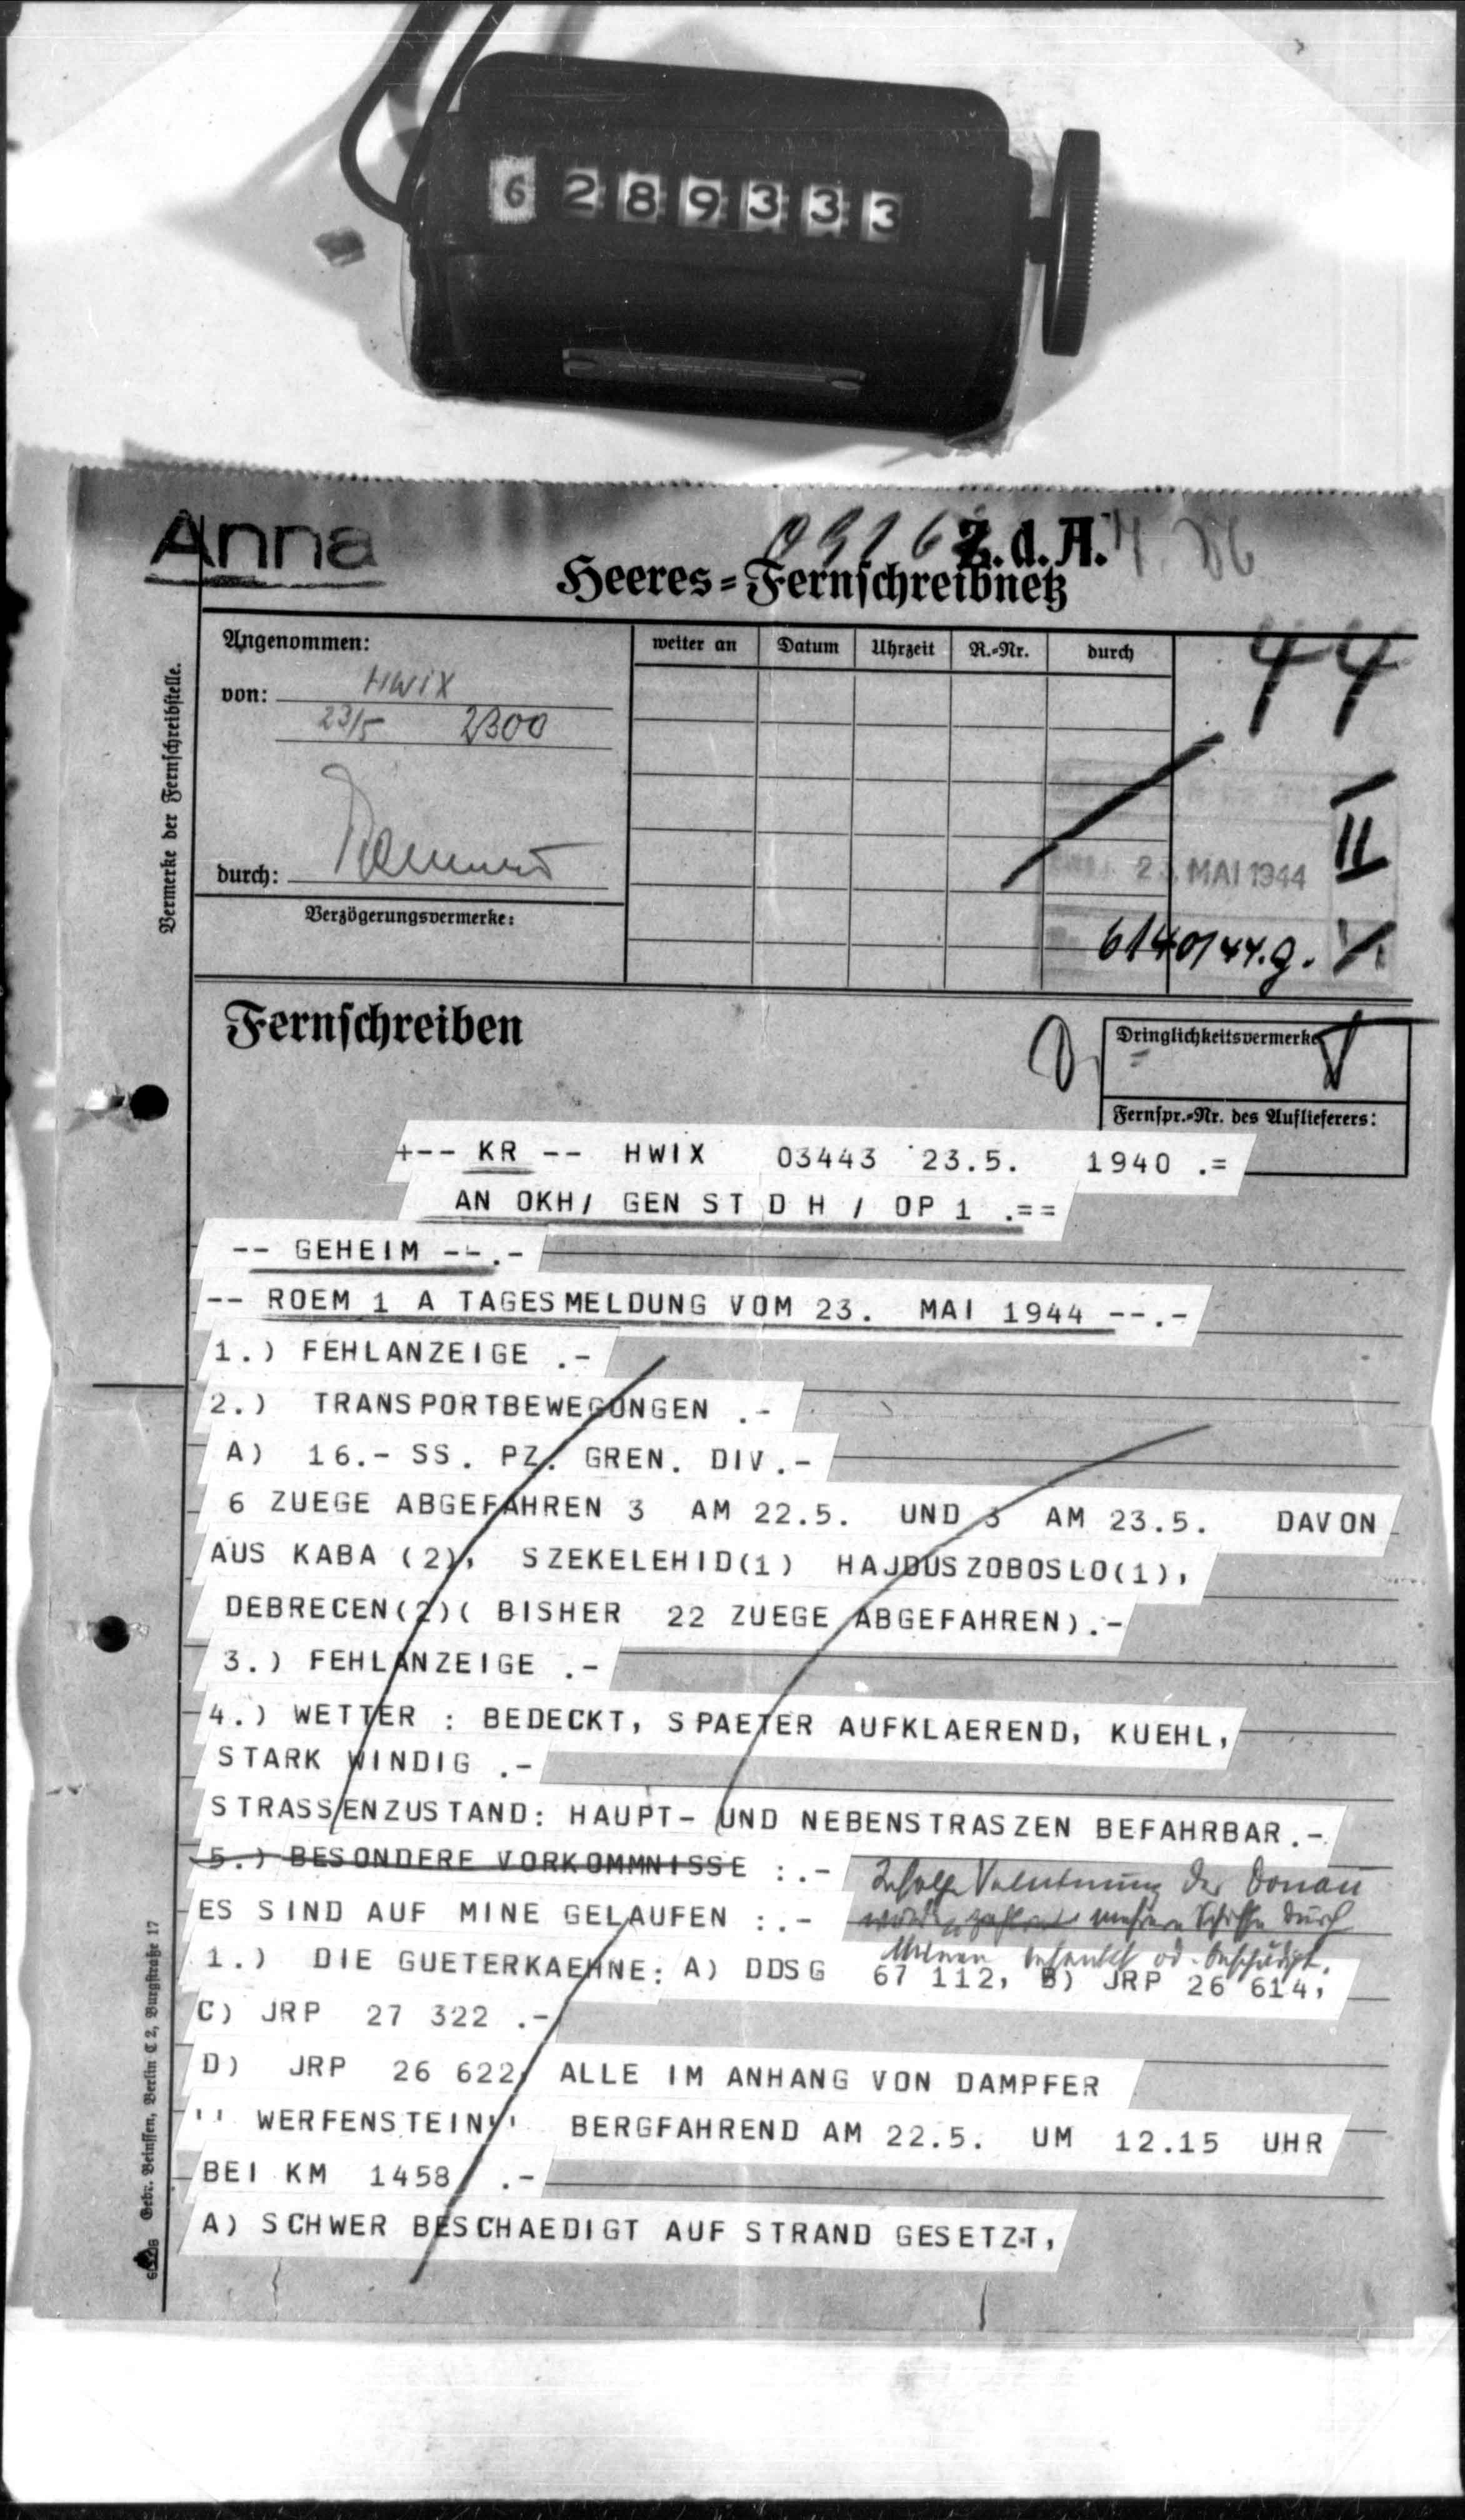 6289333
Anna
Z. d. A.
Heeres-Fernschreibnetz
Angenommen:
von: HWIX
23/5 2300
durch:
Verzögerungsvermerke:
weiter an Datum Uhrzeit R.-Nr. durch
44
II
MAI 1944
6140/44.g.
Vermerke der Fernschreibstelle.
Fernschreiben
Dringlichkeitsvermerke
Fernspr.-Nr. des Auflieferers:
+-- KR -- HWIX 03443 23.5. 1940 .=
AN OKH/ GEN ST D H / OP 1 .==
-- GEHEIM --.-
-- ROEM 1 A TAGESMELDUNG VOM 23. MAI 1944 --.-
1.) FEHLANZEIGE .-
2.) TRANSPORTBEWEGUNGEN .-
A) 16.- SS. PZ. GREN. DIV.-
6 ZUEGE ABGEFAHREN 3 AM 22.5. UND 3 AM 23.5. DAVON
AUS KABA (2), SZEKELEHID(1) HAJDUSZOBOSLO(1),
DEBRECEN(2)( BISHER 22 ZUEGE ABGEFAHREN).-
3.) FEHLANZEIGE .-
4.) WETTER : BEDECKT, SPAETER AUFKLAEREND, KUEHL,
STARK WINDIG .-
STRASSENZUSTAND: HAUPT- UND NEBENSTRASZEN BEFAHRBAR.-
5.) BESONDERE VORKOMMNISSE :.-
Infolge Verminung der Donau
ES SIND AUF MINE GELAUFEN :.-
mehrere Schiffe durch
Minen versenkt od. beschädigt.
1.) DIE GUETERKAEHNE: A) DDSG 67 112, B) JRP 26 614,
C) JRP 27 322 .-
D) JRP 26 622, ALLE IM ANHANG VON DAMPFER
'' WERFENSTEIN'' BERGFAHREND AM 22.5. UM 12.15 UHR
BEI KM 1458, .-
A) SCHWER BESCHAEDIGT AUF STRAND GESETZT,
Gebr. Beinssen, Berlin C 2, Burgstraße 17